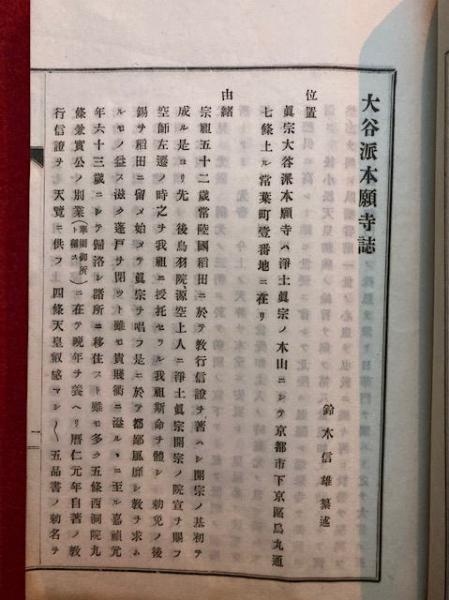 大谷派本願寺誌
鈴木信雄纂述
位置
眞宗大谷派本願寺ハ淨土眞宗ノ本山ニシテ京都市下京區烏丸通
七條上ル常葉町壹番地ニ在リ
由緒
宗祖五十二歲常陸國稻田ニ於テ敎行信證ヲ著ハシ開宗ノ基初テ
成ル是ヨリ先 後鳥羽院源空上人ニ淨土眞宗開宗ノ院宣ヲ賜フ
空師左遷ノ時之ヲ我祖ニ授托セラル我祖斯命ヲ體シ 勅免ノ後
錫ヲ稻田ニ留メ始テ眞宗ヲ唱フ是ニ於テ都鄙風靡シ敎ヲ求ム
ルモノ益ス滋ク蓬戸ヲ閉ツト雖モ貴賤衢ニ溢ルヽニ至ル嘉禎元
年六十三歲ニシテ歸洛シ諸所ニ移住スト雖モ多ク五條西洞院九
條兼實公ノ別業(華園御所ト稱ス)ニ在テ晚年ヲ養ヘリ曆仁元年自著ノ敎
行信證ヲ 天覽ニ供フ 四條天皇叡感マシ〱五品書ノ勅名ヲ
一